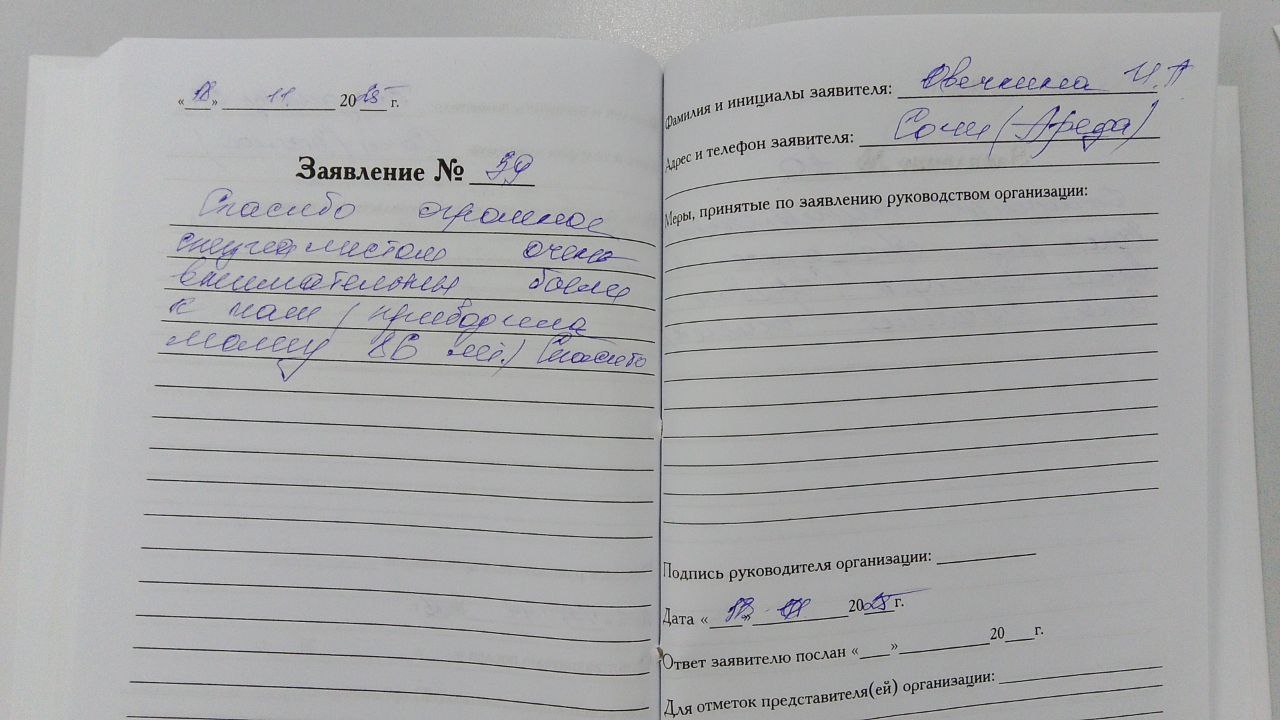 «18» 11. 2025 г.
Заявление № 59
Спасибо огромное
специалистам очень
внимательны были
к нам (приводила
маму 86 лет.) Спасибо
Фамилия и инициалы заявителя: Овечкина И.П
Адрес и телефон заявителя: Сочи (Агеда)
Меры, принятые по заявлению руководством организации:
Подпись руководителя организации:
Дата «18» 11 2025 г.
Ответ заявителю послан «___» 20___г.
Для отметок представителя(ей) организации: